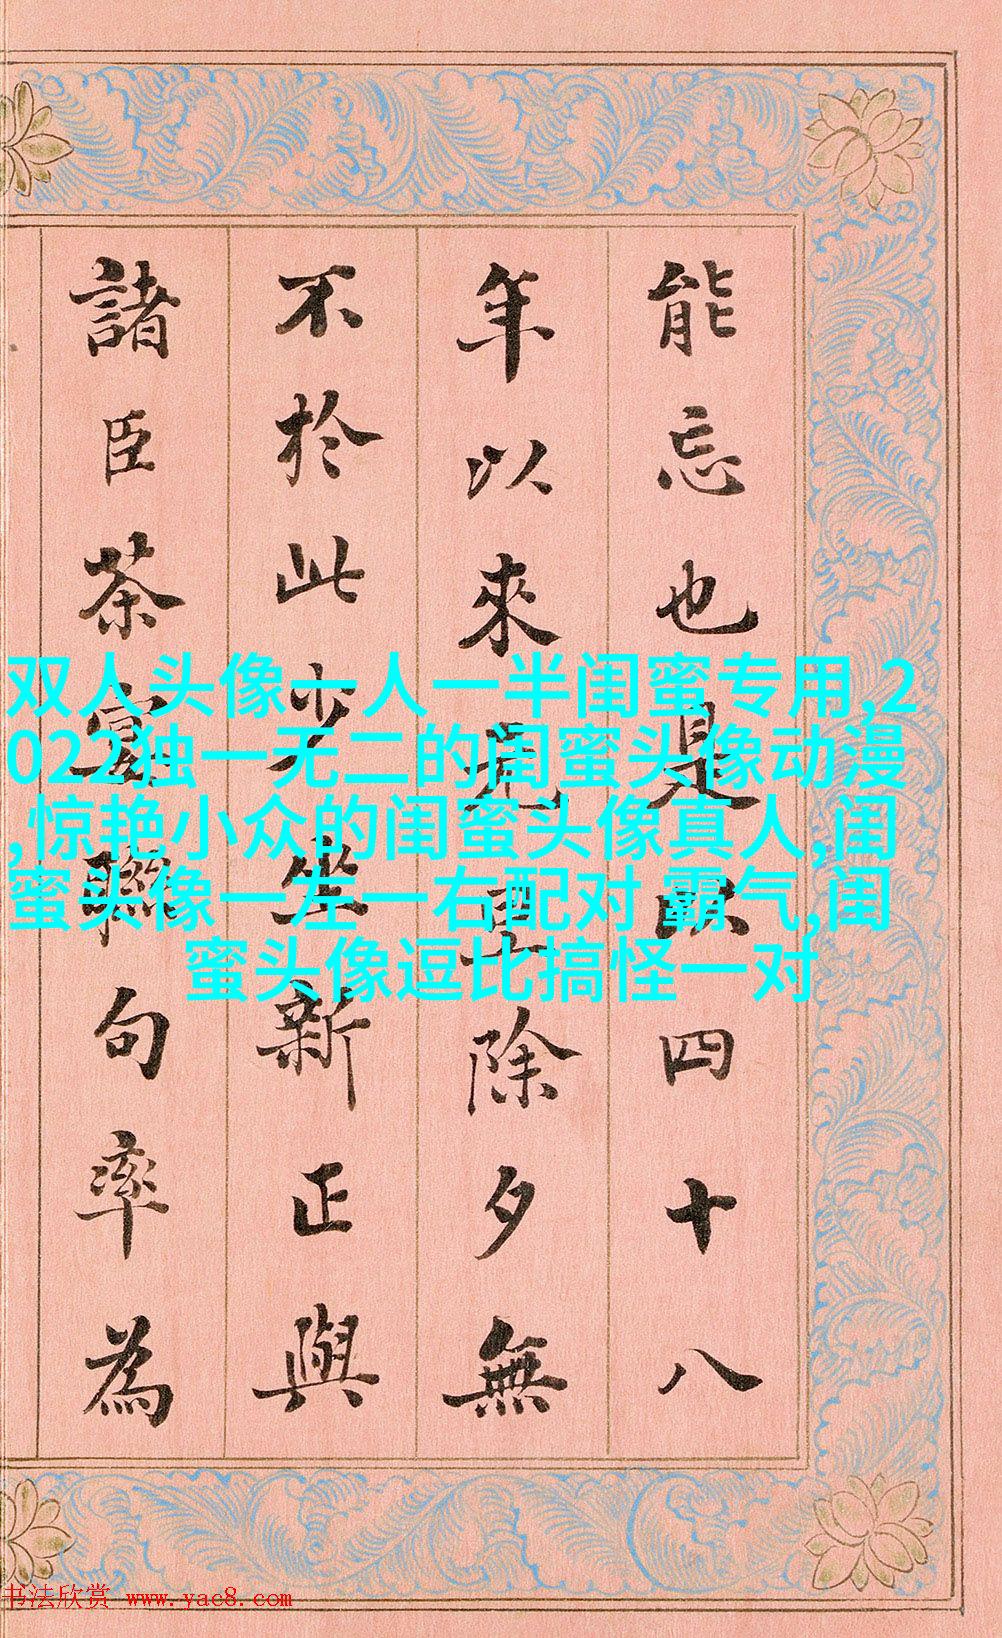 能忘也是以四十八
年以來除夕無
不於此少坐新正與
諸臣茶宴聯句率為
双人头像一人一半闺蜜专用,2
022独一无二的闺蜜头像动漫
,惊艳小众的闺蜜头像真人,闺
蜜头像一左一右配对 霸气,闺
蜜头像逗比搞怪一对
书法欣赏 www.yac8.com